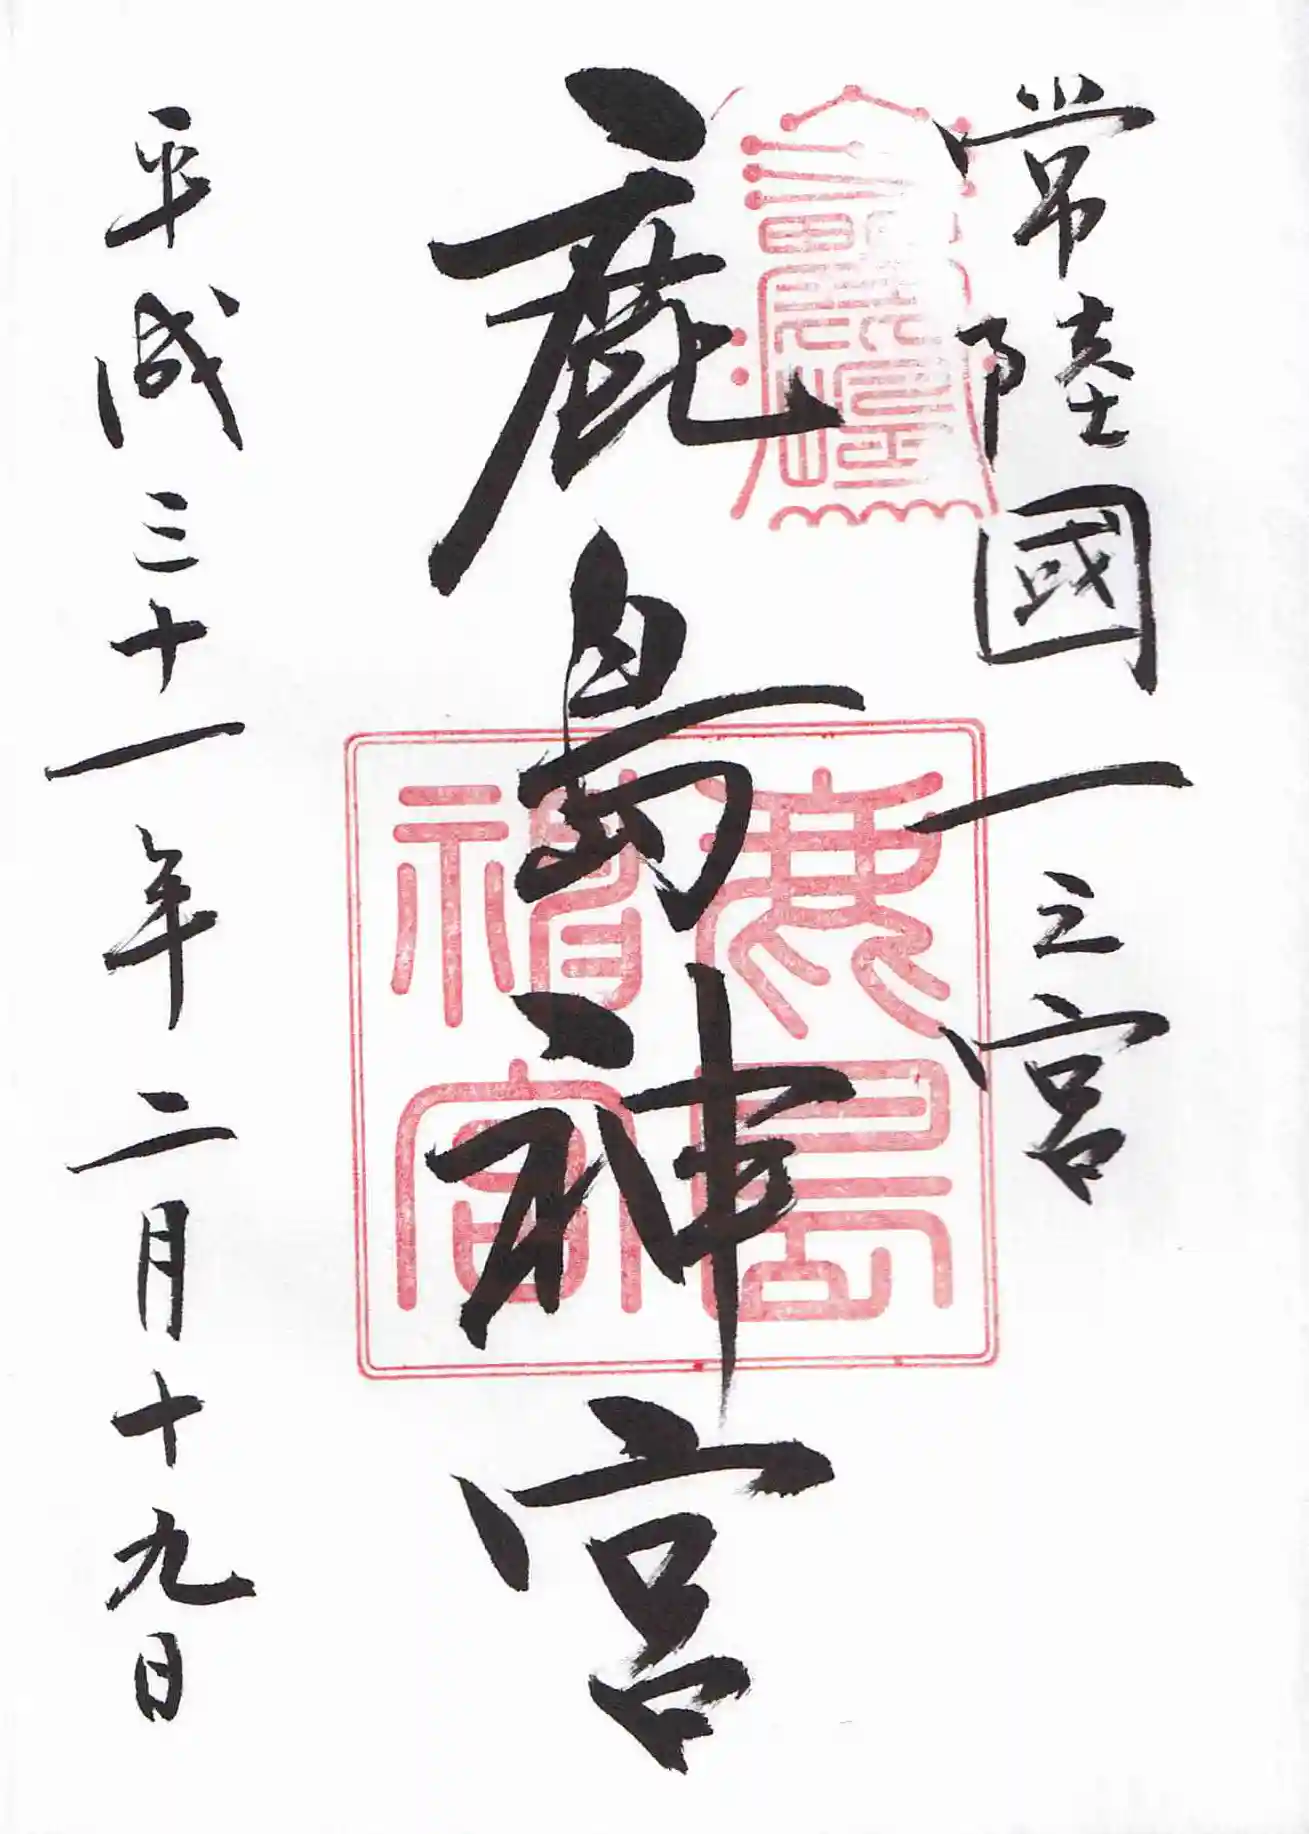 常陸國一之宮
鹿島神宮
鹿島
神宮
平成三十一年二月十九日